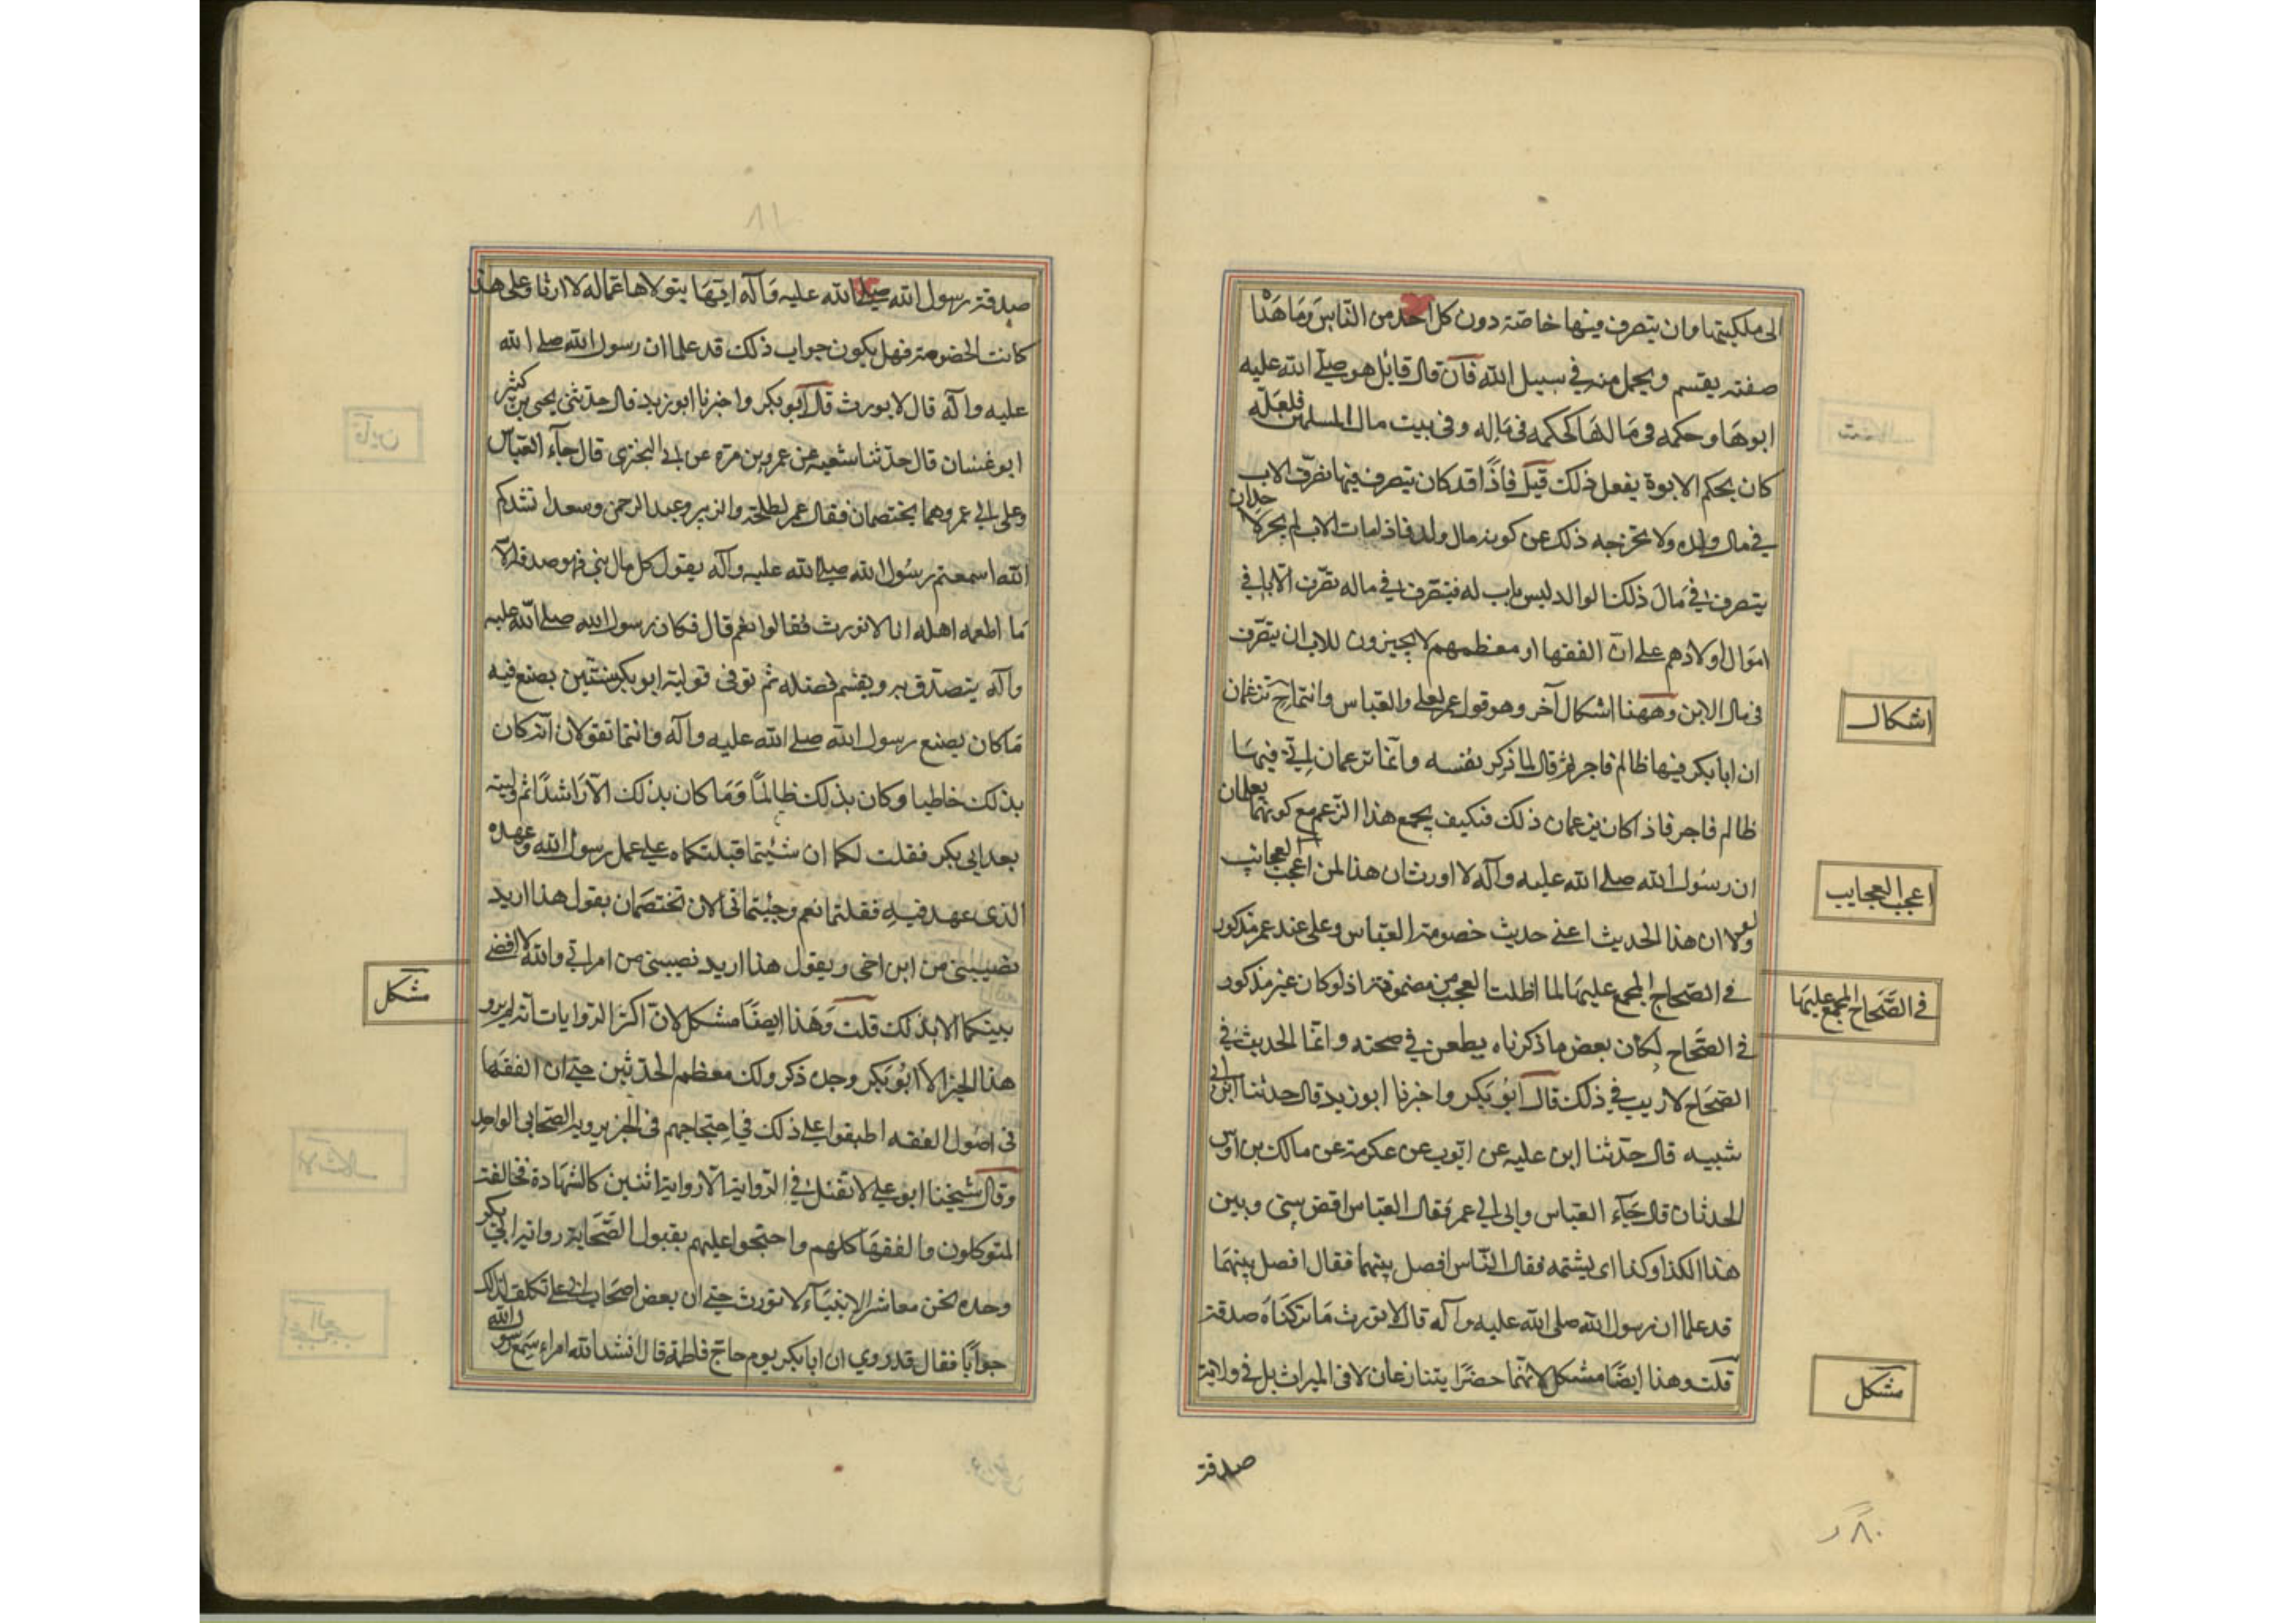 الى ملكيتها وان يتصرف فيها خاصة دون كل احد من الناس وما هذا
صفته يقسم ويحمل منه في سبيل الله فان قال قايل هو صلى الله عليه
ابوها وحكمه في مالها كحكمه في ماله وفي بيت مال المسلمين فلعله
كان بحكم الابوة يفعل ذلك قيل فاذا قد كان يتصرف فيها تصرف الاب
في مال ولده ولا يخرجه ذلك عن كونه مال ولده فاذا مات الاب لم يجز لاحد ان
يتصرف في مال ذلك الولد ليس باب له فيتصرف في ماله تصرف الابا في
اموال اولادهم على ان الفقها او معظمهم لا يجيزون للاب ان يتصرف
في مال الابن وههنا اشكال آخر وهو قول عمر لعلي والعباس وانتما ح تزعمان
ان ابا بكر فيها ظالم فاجر ثم قال لما ذكر نفسه وانما تزعمان اني فيها
ظالم فاجر فاذا كان يزعمان ذلك فكيف يجمع هذا الزعم مع كونهما يعلمان
ان رسول الله صلى الله عليه وآله لا اورث ان هذا لمن اعجب العجائب
ولولا ان هذا الحديث اعني حديث خصومة العباس وعلي عند عمر مذكور
في الصحاح المجمع عليها لما اطلت العجب من مضمونه اذ لو كان غير مذكور
في الصحاح لكان بعض ما ذكرناه يطعن في صحته وانما الحديث في
الصحاح لا ريب في ذلك قال ابو بكر واخبرنا ابو زيد قال حدثنا ابن ابي
شيبه قال حدثنا ابن عليه عن ايوب عن عكرمة عن مالك بن اوس
الحدثان قال جاء العباس وعلى الي عمر فقال العباس اقض بيني وبين
هذا الكذا وكذا اي يشتمه فقال الناس افصل بينهما فقال افصل بينهما
قد علما ان رسول الله صلى الله عليه وآله قال لا نورث ما تركناه صدقة
قلت وهذا ايضا مشكل لانهما حضرا يتنازعان لا في الميراث بل في ولاية
صدقة
اشكال
اعجب العجايب
في الصحاح المجمع عليها
مشكل
٨٠
٨١
صدقة رسول الله صلى الله عليه وآله ايهما يتولاها عماله لا ارثا وعلى هذا
كانت الخصومة فهل يكون جواب ذلك قد علما ان رسول الله صلى الله
عليه وآله قال لا يورث قال ابو بكر واخبرنا ابو زيد قال حدثني يحيى بن كثير
ابو غسان قال حدثنا شعبه عن عمرو بن مره عن ابي البختري قال جآء العباس
وعلى الي عمر وهما يختصمان فقال عمر لطلحة والزبير وعبد الرحمن وسعد انشدكم
الله اسمعتم رسول الله صلى الله عليه وآله يقول كل مال نبي فهو صدقة الا
ما اطعمه اهله انا لا نورث فقالوا نعم قال فكان رسول الله صلى الله عليه
وآله يتصدق به ويقسم فضله ثم توفى فوليه ابو بكر سنتين يصنع فيه
ما كان يصنع رسول الله صلى الله عليه وآله وانتما تقولان انه كان
بذلك خاطيا وكان بذلك ظالما وما كان بذلك الا راشدا ثم وليته
بعد ابي بكر فقلت لكما ان شئتما قبلتكماه على عمل رسول الله وعهده
الذي عهد فيه فقلتما نعم وجئتماني الان تختصمان بقول هذا اريد
نصيبي من ابن اخي ويقول هذا اريد نصيبي من امراتي والله لا اقضي
بينكما الا بذلك قلت وهذا ايضا مشكل لان اكثر الروايات انه لم يرو
هذا الخبر الا ابو بكر وحده ذكر ذلك معظم المحدثين حتى ان الفقها
في اصول الفقه اطبقوا على ذلك في احتجاجهم في الخبر يرويه الصحابي الواحد
وقال شيخنا ابو علي لا تقبل في الرواية الا رواية اثنين كالشهادة فخالفه
المتوكلون والفقها كلهم واحتجوا عليهم بقبول الصحابة رواية ابي بكر
وحده نحن معاشر الانبياء لا نورث حتى ان بعض اصحاب ابي علي تكلف لذلك
جوابا فقال قد روي ان ابا بكر يوم حاج فاطمة قال انشد الله امراء سمع رسول الله
مشكل